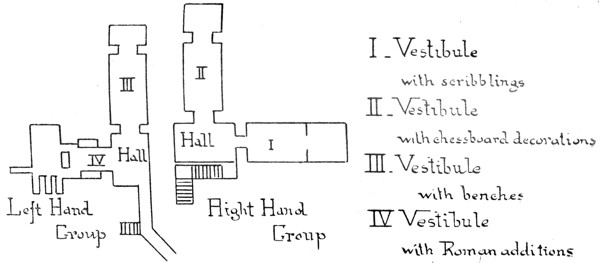 III
II
Hall
IV
Hall
I
Left Hand
Group
Right Hand
Group
I - Vestibule
with scribblings
II - Vestibule
with chessboard decorations
III - Vestibule
with benches
IV Vestibule
with Roman additions